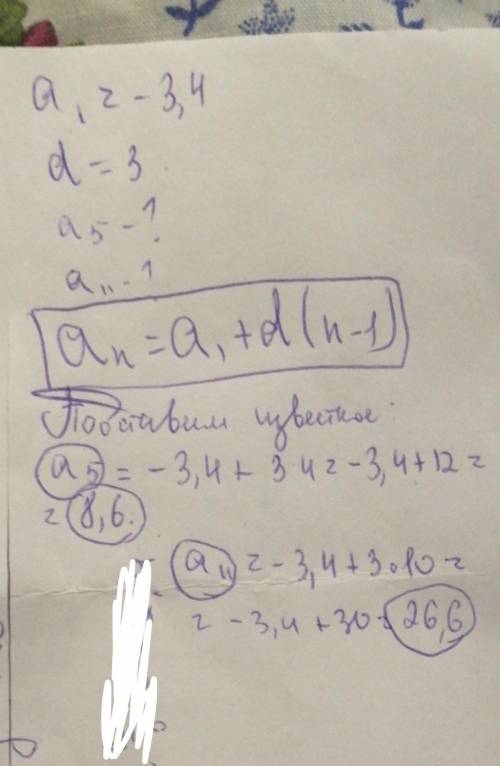 a₁ = -3,4
d = 3
a₅ - ?
a₁₁ - ?
aₙ = a₁ + d(n-1)
Подставим известное:
a₅ = -3,4 + 3 4 = -3,4 + 12 =
= 8,6.
a₁₁ = -3,4 + 3·10 =
= -3,4 + 30 = 26,6